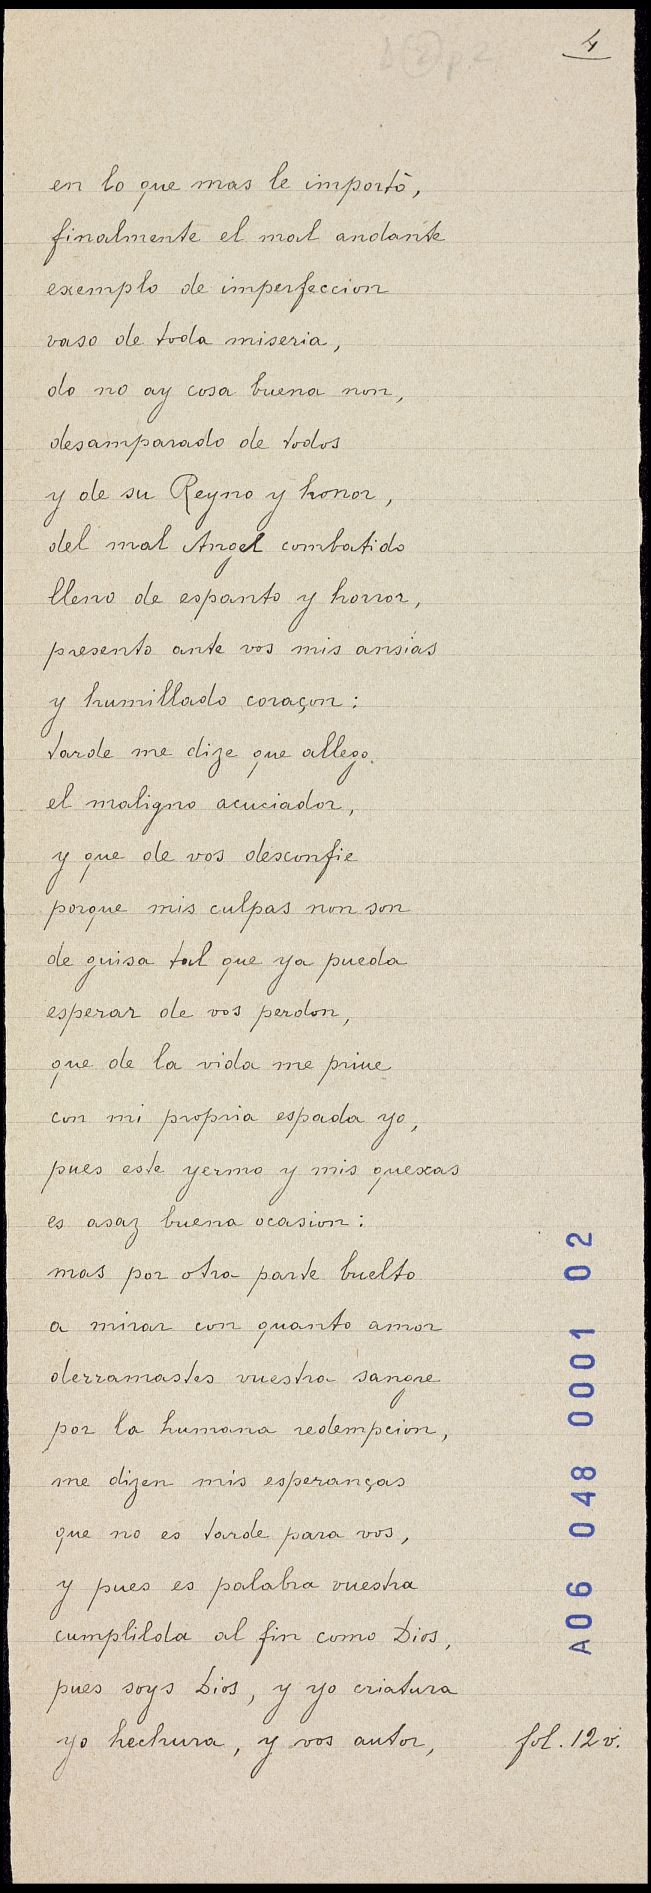 b (2) p. 2
4
en lo que mas le importó,
finalmente el mal andante
exemplo de imperfeccion
vaso de toda miseria,
do no ay cosa buena non,
desamparado de todos
y de su Reyno y honor,
del mal Angel combatido
lleno de espanto y horror,
presento ante vos mis ansias
y humillado coraçon:
tarde me dize que allego.
el maligno acuciador,
y que de vos desconfie
porque mis culpas non son
de guisa tal que ya pueda
esperar de vos perdon,
que de la vida me priue
con mi propria espada yo,
pues este yermo y mis quexas
es asaz buena ocasion:
mas por otra parte buelto
a mirar con quanto amor
derramastes vuestra sangre
por la humana redempcion,
me dizen mis esperanças
que no es tarde para vos,
y pues es palabra vuestra
cumplilda al fin como Dios,
pues soys Dios, y yo criatura
yo hechura, y vos autor,
fol. 12 v.
A06 048 0001 02